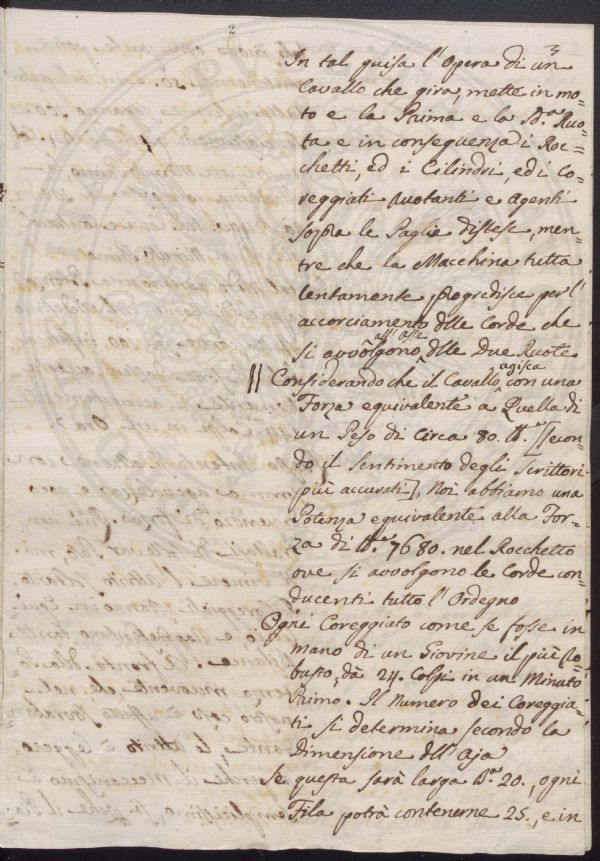 2
3
In tal guisa l'Opera di un
Cavallo che gira, mette in mo=
to e la Prima e la Sd.a Ruo=
ta e in conseguenza i Roc=
chetti, ed i Cilindri, ed i Co=
reggiati Ruotanti e agenti
sopra le Paglie distese, men=
tre che la Macchina tutta
lentamente progredisce per l'
accorciamento dlle Corde che
si avvolgono all'asse dlle Due Ruote
Considerando che il Cavallo agisca con una
Forza equivalente a Quella di
un Peso di Circa 80. lb.e [secon=
do il sentimento degli Scrittori
più accurati], Noi abbiamo una
Potenza equivalente alla For=
za di lb.e 7680. nel Rocchetto
ove si avvolgono le Corde con=
ducenti tutto l'Ordegno
Ogni Coreggiato come se fosse in
mano di un Giovine il più Ro=
busto, dà 24. Colpi in un Minuto
Primo. Il Numero dei Coreggia=
ti si determina secondo la
Dimensione dll'Aja
Se questa sarà larga B.a 20., ogni
Fila potrà contenerne 25., e in